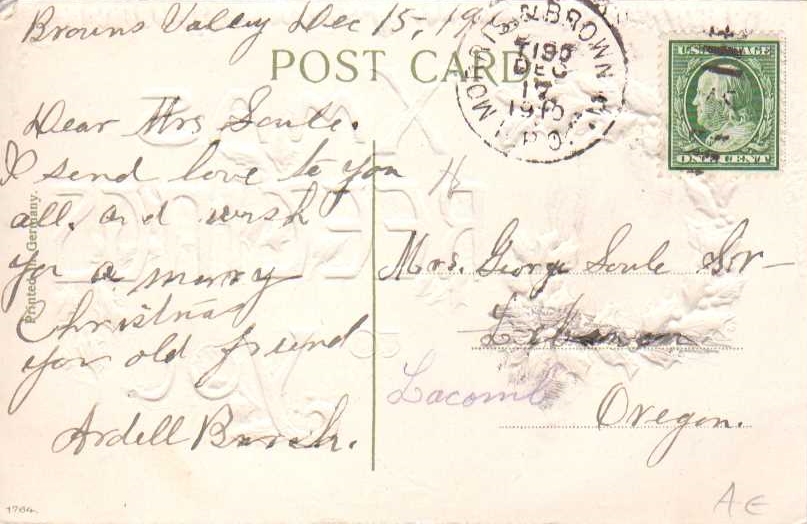 Browns Valley Dec 15, 19
POST CARD
Dear Mrs Soule.
I send love to you
all. and wish
you a marry
Christmas
your old friend
Ardell Bursh.
Printed in Germany.
1764.
& BROWN
DEC
17
1910
R.P.O.
U.S. POSTAGE
ONE CENT
Mrs. George Soule Sr
Lebanon.
Lacomb
Oregon.
AE